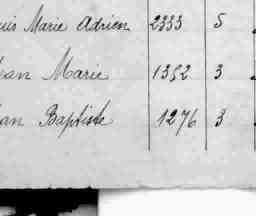 uis Marie Adrien 2333 5
ean Marie 1352 3
ean Baptiste 1276 3